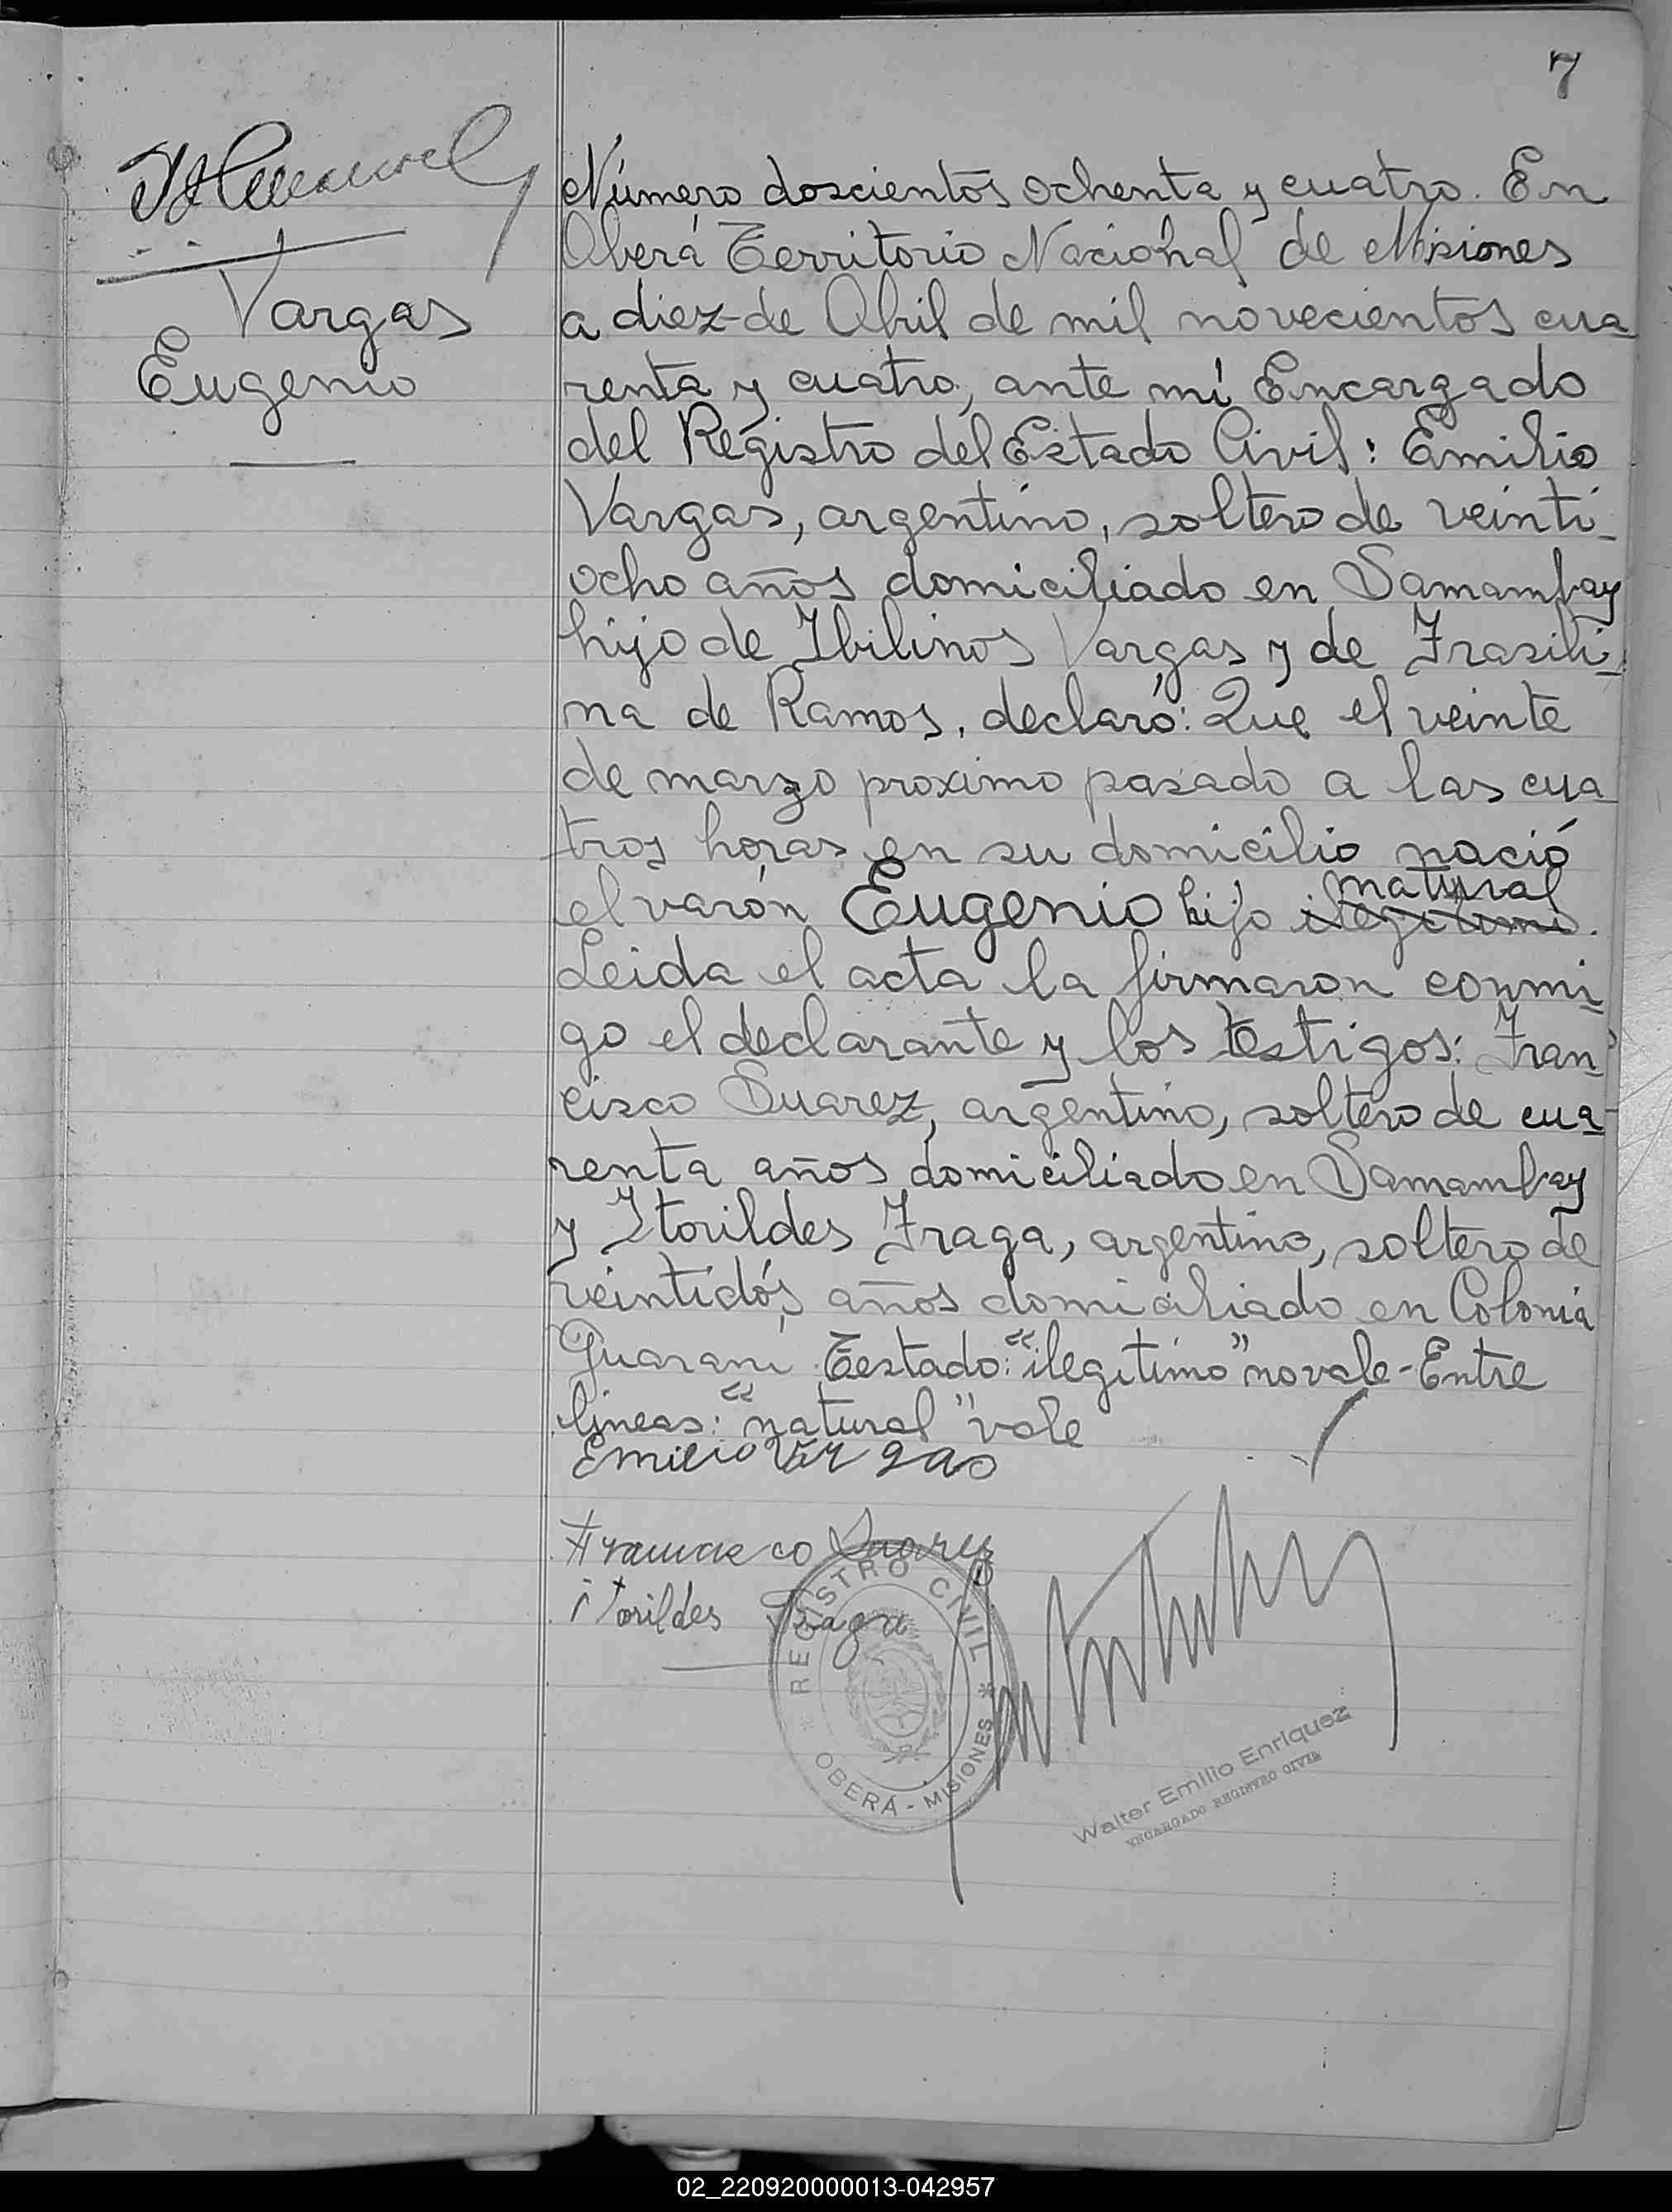 7
Vargas
Eugenio
Número doscientos ochenta y cuatro. En
Oberá Territorio Nacional de Misiones
a diez de Abril de mil novecientos cua
renta y cuatro, ante mí Encargado
del Registro del Estado Civil: Emilio
Vargas, argentino, soltero de veinti-
ocho años domiciliado en Samambay
hijo de Ibilinos Vargas y de Frasili-
na de Ramos, declaró: Que el veinte
de marzo proximo pasado a las cua
tros horas en su domicilio nació
natural
el varón Eugenio hijo ilegitimo.
Leida el acta la firmaron conmi-
go el declarante y los testigos: Fran-
cisco Suarez, argentino, soltero de cua-
renta años domiciliado en Samambay
y Itorildes Fraga, argentino, soltero de
veintidós años domiciliado en Colonia
Guaraní Testado: "ilegítimo" no vale - Entre
lineas: "natural" vale
Emilio Vargas
Francisco Suarez
itorildes Fraga
REGISTRO CIVIL
OBERÁ - MISIONES
Walter Emilio Enriquez
ENCARGADO REGISTRO CIVIL
02_220920000013-042957